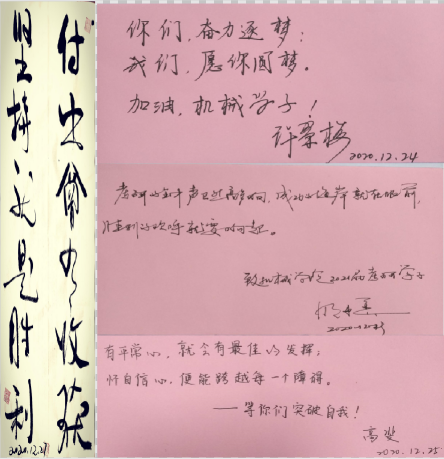 付出必有收获
坚持就是胜利
2020.12.27
你们,奋力逐梦;
我们,愿你圆梦。
加油,机械学子!
2020.12.24
考研的钟声已然高高响,成功的海岸就在眼前,
胜利的欢呼就要响起。
致机械学院2021届考研学子
有平常心,就会有最佳的发挥;
怀自信心,便能跨越每一个障碍。
——等你们突破自我!
2020.12.25